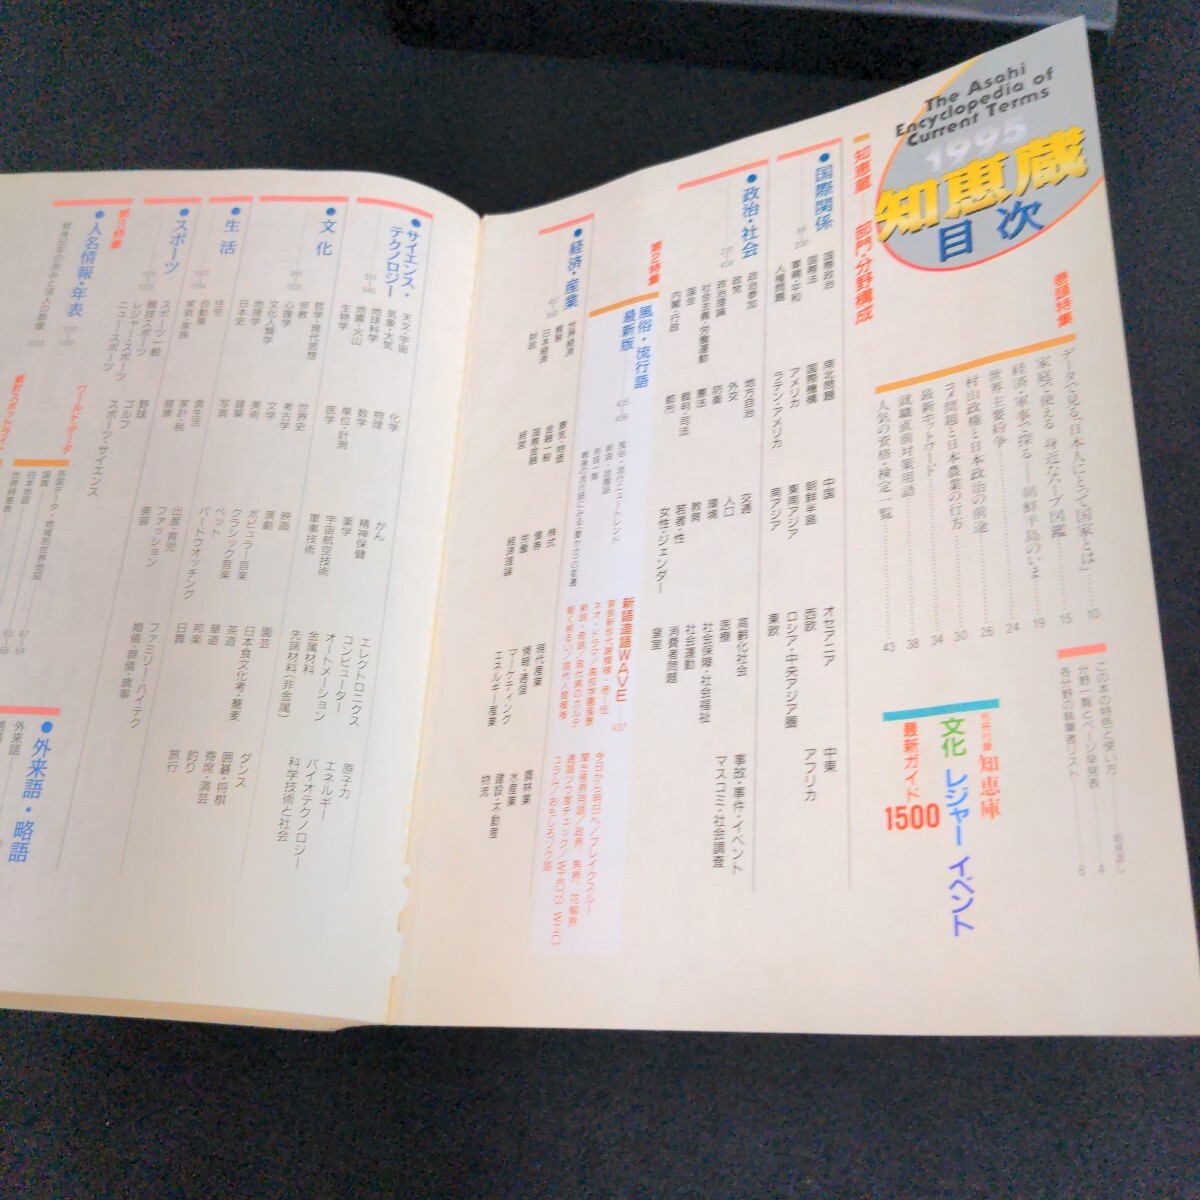 The Asahi
Encyclopedia of
Current Terms
1995
知恵蔵
目次
巻頭特集
データで見る「日本人にとって国家とは」 10
家庭で使える 身近なハーブ図鑑 15
経済・軍事で探る——朝鮮半島のいま 19
世界主要紛争 24
村山政権と日本政治の前途 26
コメ問題と日本農業の行方 30
最新ホットワード 34
就職直前対策用語 38
人気の資格・検定一覧 43
この本の特色と使い方 4
分野一覧とページ早見表
各分野の執筆者リスト 8
別冊付録 知恵庫
文化 レジャー イベント
最新ガイド1500
知恵蔵——部門・分野構成
●国際関係
国際政治
国際法
軍縮・平和
人権問題
南北問題
国際機構
アメリカ
ラテン・アメリカ
中国
朝鮮半島
東南アジア
南アジア
オセアニア
西欧
ロシア・中央アジア圏
東欧
中東
アフリカ
●政治・社会
政治参加
政党
政治理論
社会主義・労働運動
国会
内閣・行政
地方自治
外交
防衛
憲法
裁判・司法
都市
交通
人口
環境
教育
若者・性
女性・ジェンダー
高齢化社会
医療
社会保障・社会福祉
社会運動
消費者問題
皇室
事故・事件・イベント
マスコミ・社会調査
第2特集
風俗・流行語
最新版
425
436
風俗・流行ニュートレンド
新語・話題語
用語一覧
新語造語WAVE 437
今日から明日へ/ブレイクスルー
聞き慣れ業界用語/政界、角界、花柳界
コラム/おもしろソク語
●経済・産業
世界経済
貿易
日本経済
財政
景気・物価
金融一般
国際金融
経営
株式
債券
労働
経済理論
現代産業
情報・通信
マーケティング
エネルギー産業
農林業
水産業
建設・不動産
物流
●サイエンス・
テクノロジー
天文・宇宙
気象・大気
地球科学
地震・火山
生物学
化学
物理
数学
単位・計測
医学
がん
精神保健
薬学
宇宙航空技術
軍事技術
エレクトロニクス
コンピューター
オートメーション
金属材料
先端材料(非金属)
原子力
エネルギー
バイオテクノロジー
科学技術と社会
●文化
哲学・現代思想
宗教
心理学
文化人類学
地理学
日本史
世界史
考古学
文学
美術
建築
写真
映画
演劇
ポピュラー音楽
クラシック音楽
園芸
日本食文化考・蕎麦
茶道
華道
邦楽
日舞
ダンス
囲碁・将棋
寄席・演芸
釣り
旅行
●生活
住宅
自動車
家庭・家族
食生活
家計・税
健康
ペット
バードウオッチング
出産・育児
ファッション
美容
ファミリー・ハイテク
婚儀・葬儀・慶事
●スポーツ
スポーツ一般
競技スポーツ
レジャー・スポーツ
ニュー・スポーツ
野球
ゴルフ
スポーツ・サイエンス
第3特集
●人名情報・年表
ワールド・データ
各国データ・地域別世界地図 47〜64
国旗
日本地図
世界時差表
●外来語・略語
外来語